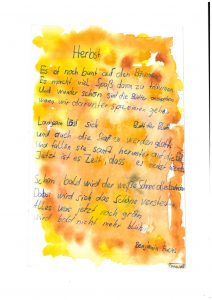 Herbst
Es ist noch bunt auf den Bäumen
Es macht viel Spaß dann zu träumen
Und wunder schön sind die Blätter
wenn wir darunter spazieren gehn.
Langsam löst sich Blatt für Blatt
und auch die
und fallen sie sanft herunter auf die
Jetzt ist es Zeit, dass es
Schon bald wird der weiße Schnee
wird sich das schöne verstecken
Alles was jetzt noch grün
wird bald nicht mehr blühn
Benjamin